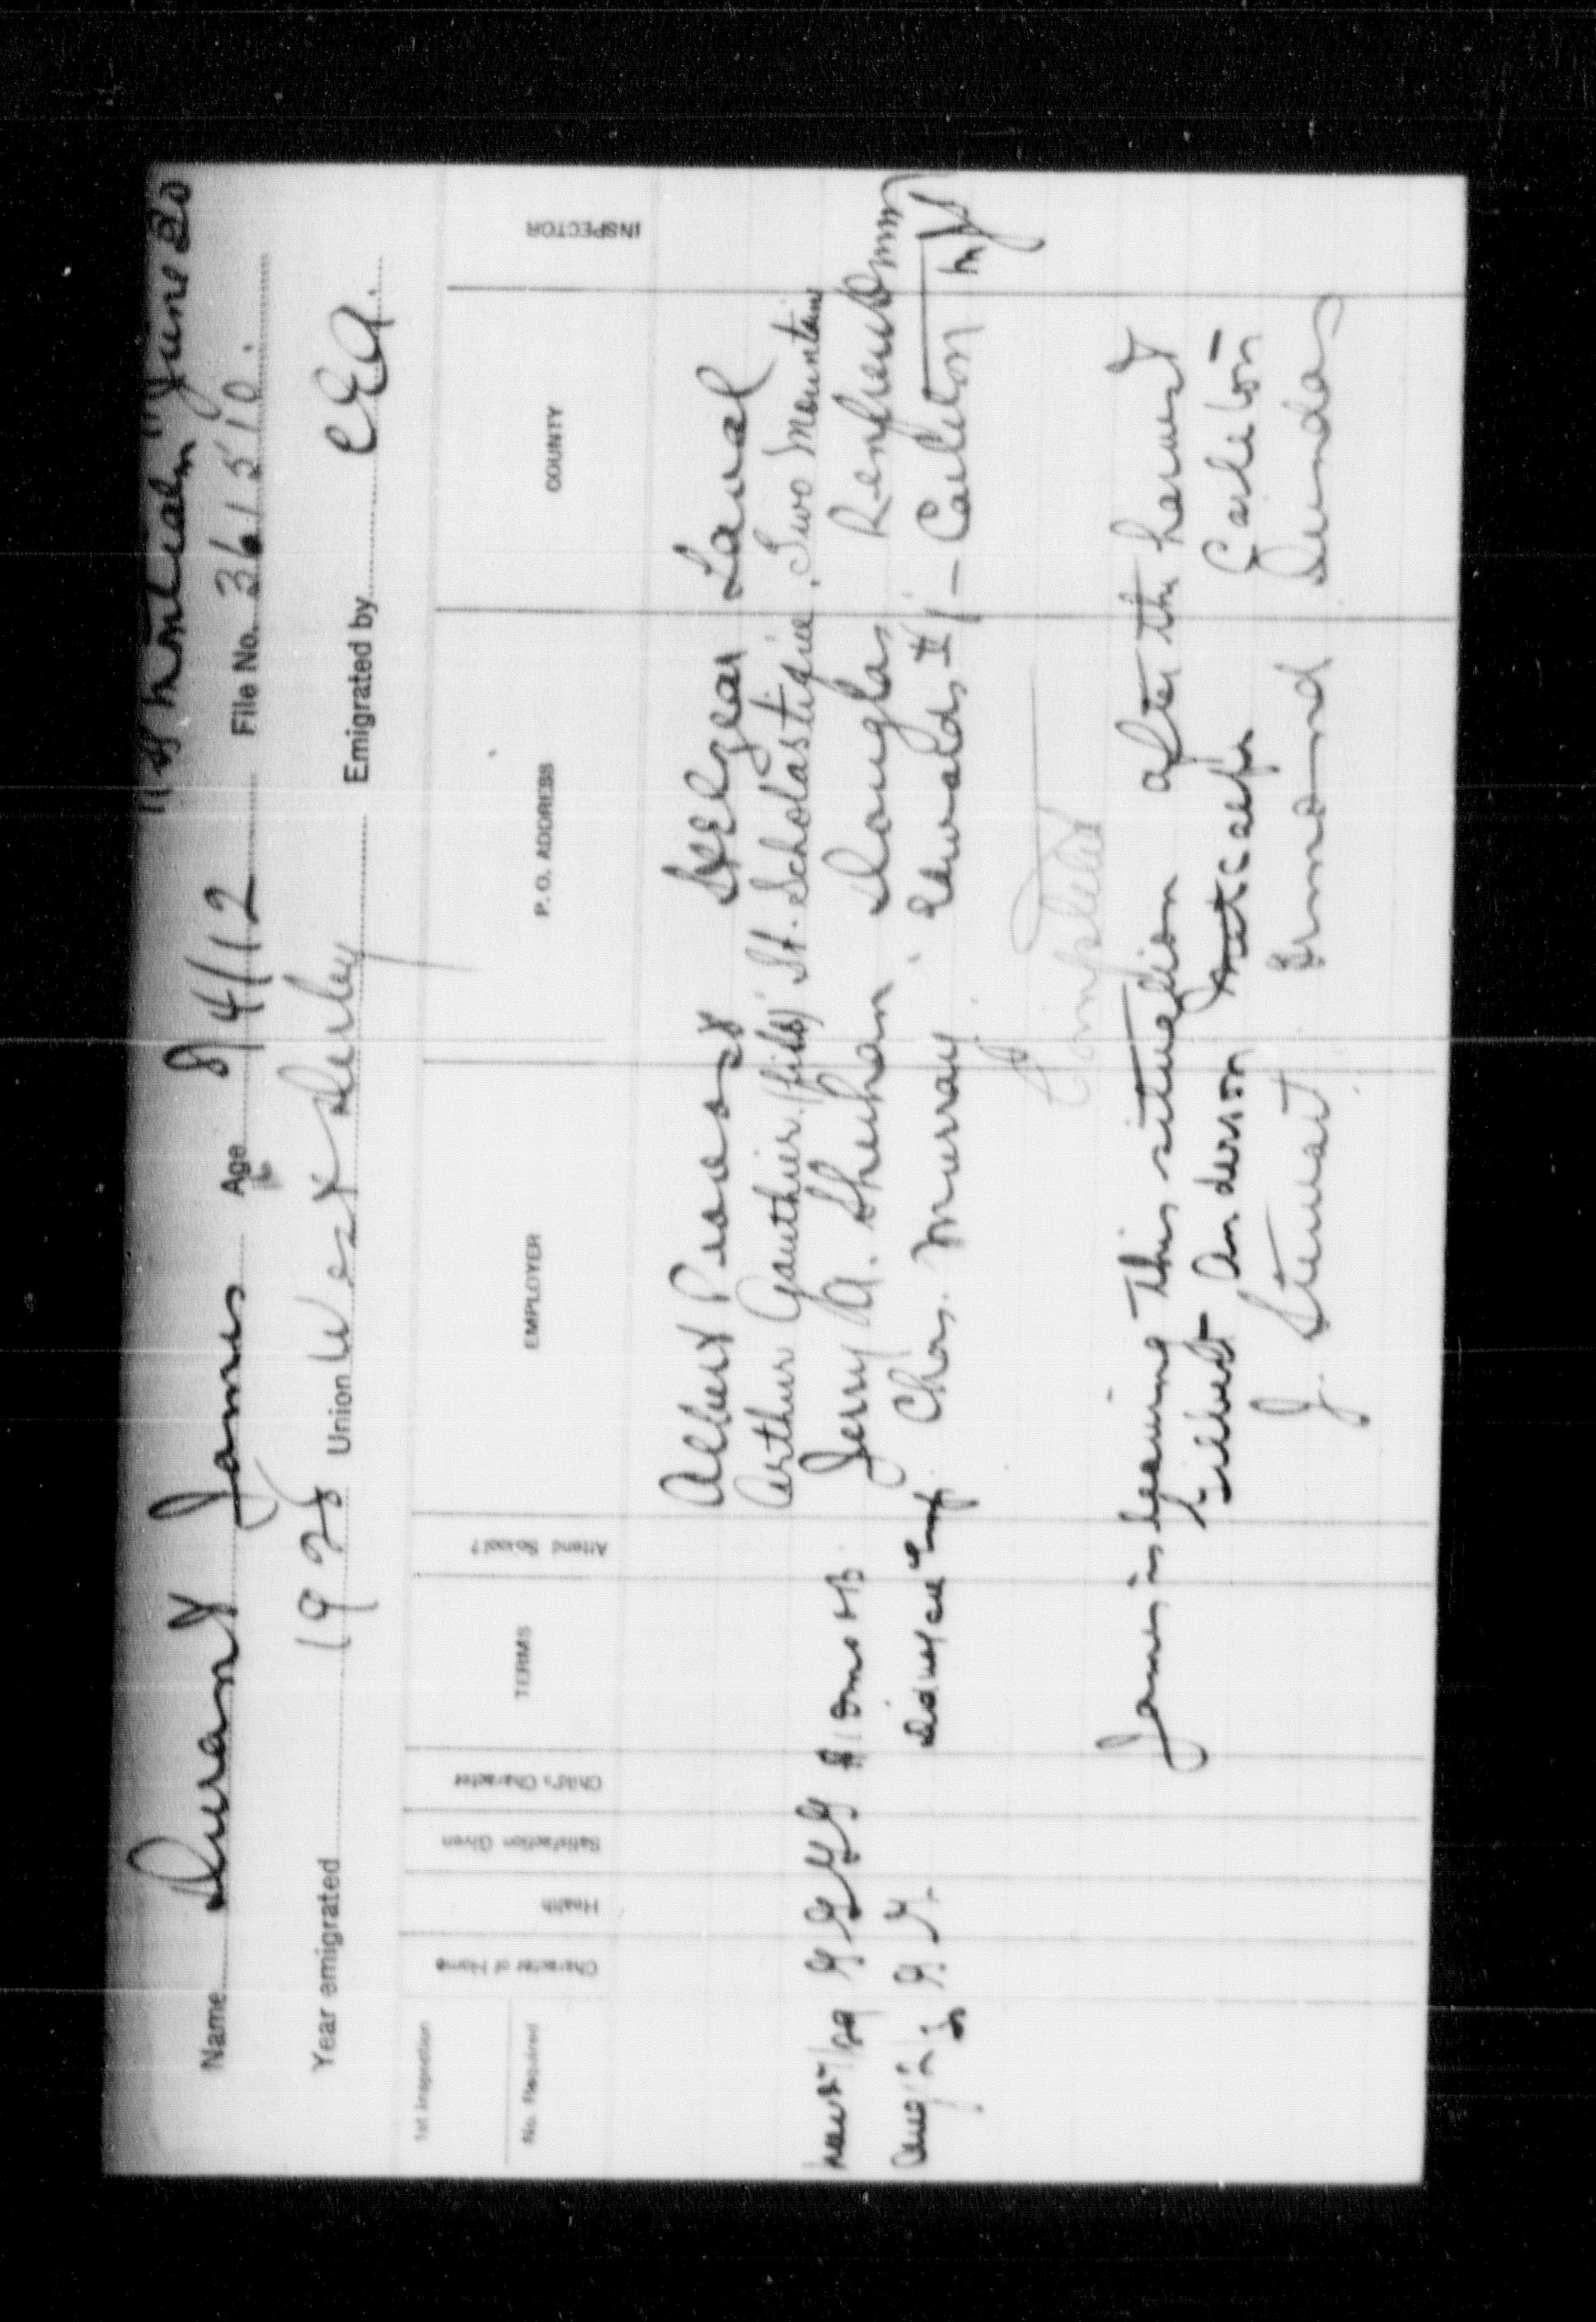 "Montcalm" June 20
Name Durant James Age 8/4/12 File No. 361510.
Year emigrated 1928 Union West Derby Emigrated by C.E.A.
1st Inspection
No. Required
Character of Home Health Satisfaction Given Child's Character TERMS Attend School? EMPLOYER P. O. ADDRESS COUNTY INSPECTOR
Albert St Elzear Laval
Arthur Gauthier (fils) St. Scholastique, Two Mountains
G G G G Jerry A. Sheehan Douglas Renfrew
G. G. Chas. Murray Carleton
Completed
James is leaving this situation after the harvest
Gilbert Anderson Metcalfe Carleton
J. Stewart Ormond Dundas